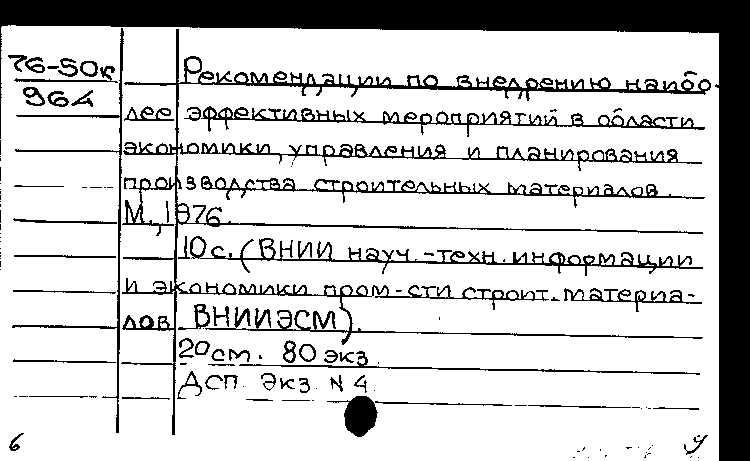 76-50к
964
Рекомендации по внедрению наибо-
лее эффективных мероприятий в области
экономики, управления и планирования
производства строительных материалов.
М., 1976.
10 с. (ВНИИ науч.-техн. информации
и экономики пром-сти строит. материа-
лов ВНИИЭСМ).
20 см. 80 экз.
ДСП. Экз. N 4.
6